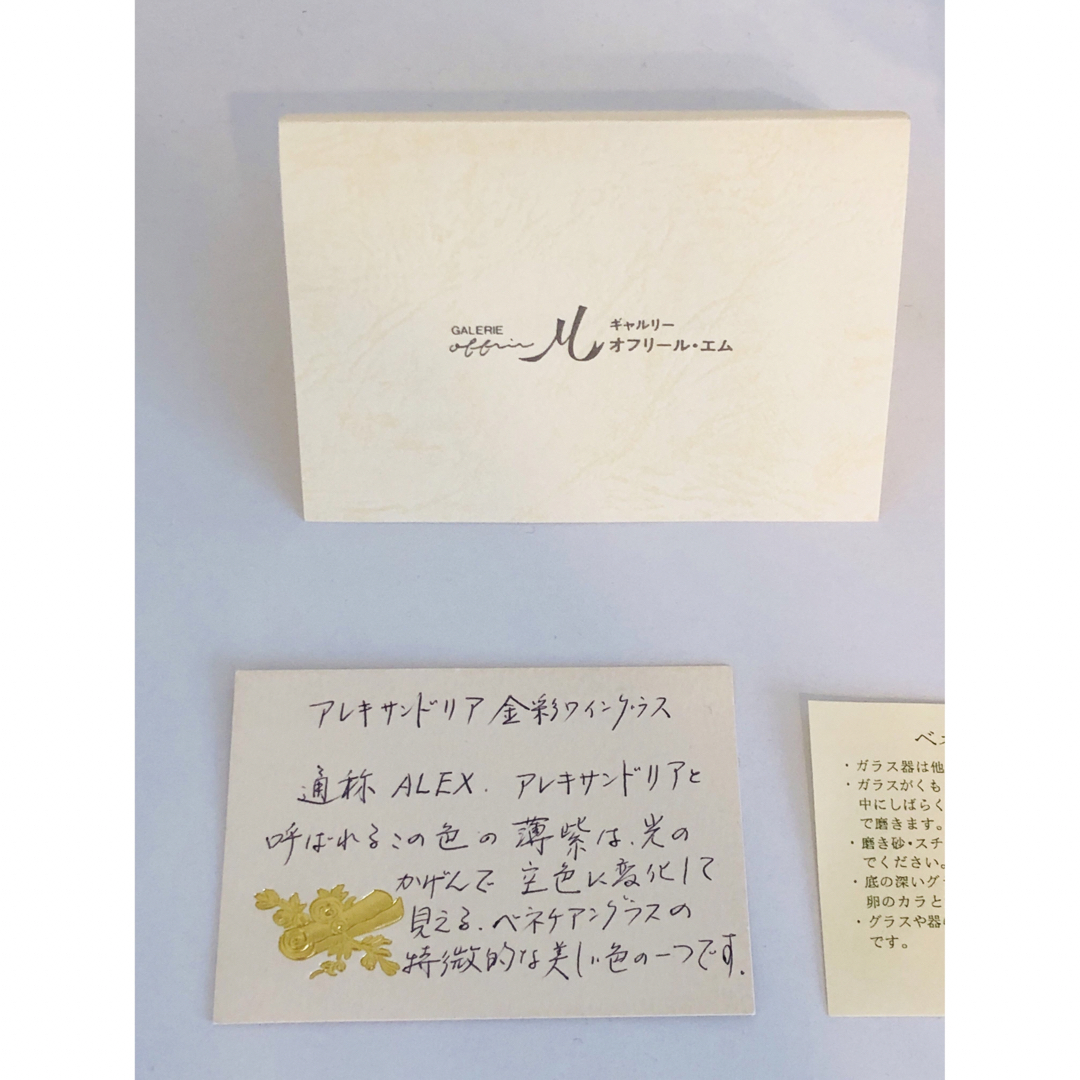 GALERIE
offrir M
ギャルリー
オフリール・エム
アレキサンドリア 金彩ワイングラス
通称 ALEX. アレキサンドリアと
呼ばれるこの色の薄紫は、光の
かげんで 空色に変化して
見える、ベネチアングラスの
特徴的な美しい色の一つです.
ベネ
・ガラス器は他
・ガラスがくも
中にしばらく
で磨きます。
・磨き砂・スチ
でください。
・底の深いグ
卵のカラと
・グラスや器
です。